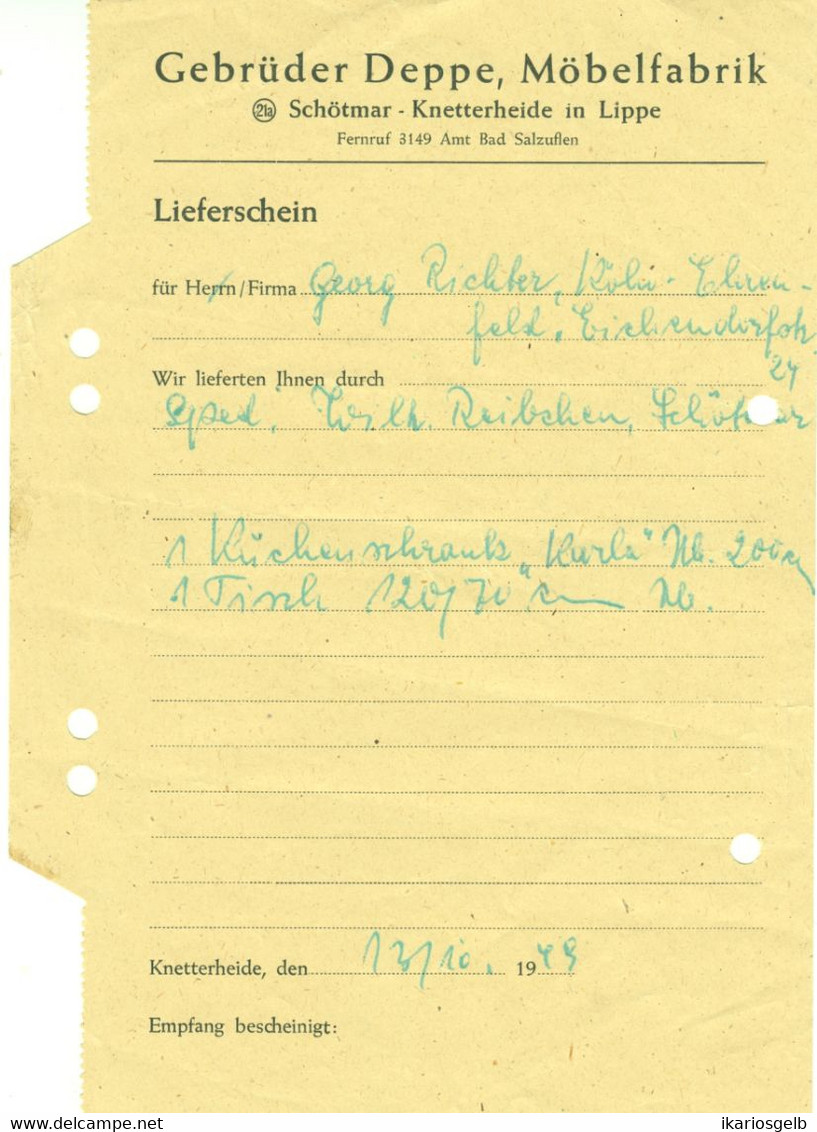 Gebrüder Deppe, Möbelfabrik
21a Schötmar - Knetterheide in Lippe
Fernruf 3149 Amt Bad Salzuflen
Lieferschein
für Herrn/Firma Georg Richter, Köln-Ehren-
feld, Eichendorfstr.
24
Wir lieferten Ihnen durch
Sped. Wilh. Reibchen, Schötmar
1 Küchenschrank „Karla" Nb. 200 cm
1 Tisch 120/70 cm Nb.
Knetterheide, den 13/10. 1949
Empfang bescheinigt:
delcampe.net
ikariosgelb